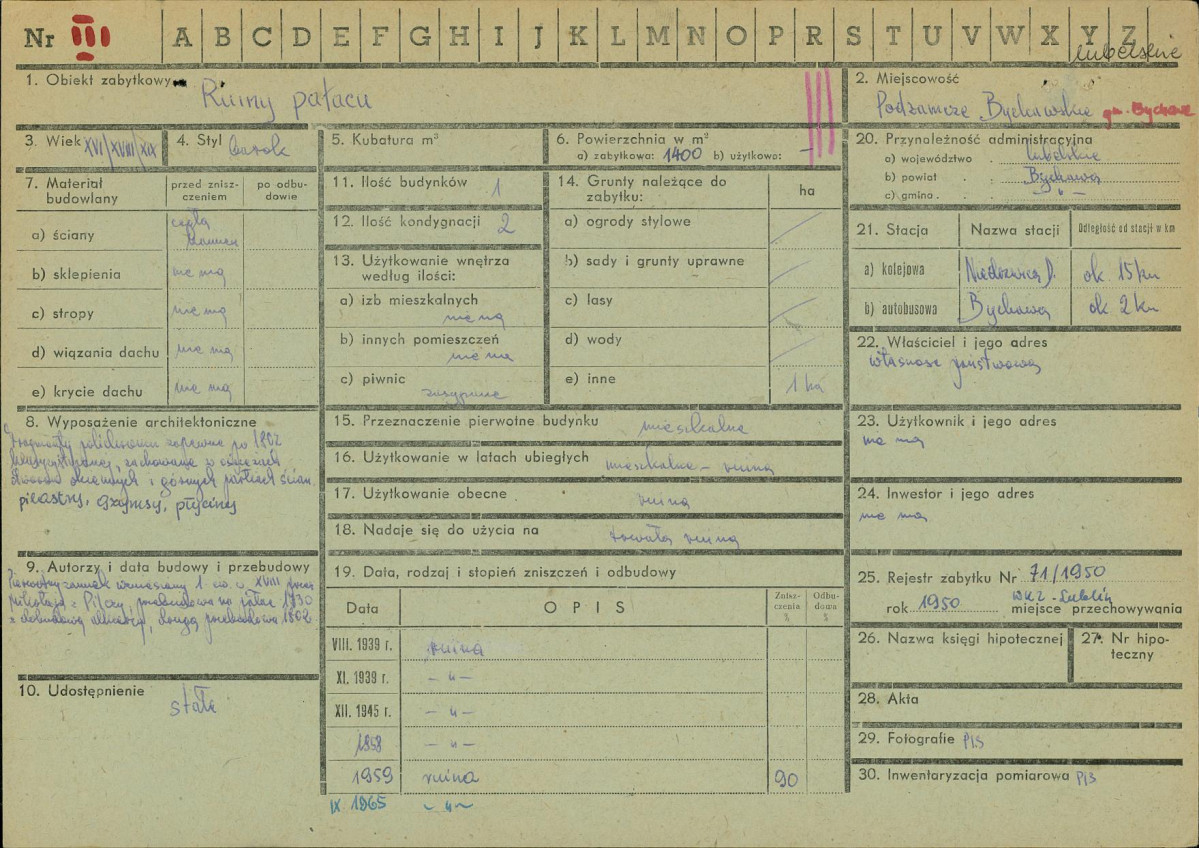 Nr III A B C D E F G H I J K L M N O P R S T U V W X Y Z
lubelskie
1. Obiekt zabytkowy
Ruiny pałacu
2. Miejscowość
Podzamcze Bychawskie gm. Bychawa
3. Wiek XVI/XVIII/XIX
4. Styl barok
5. Kubatura m³
6. Powierzchnia w m²
a) zabytkowa: 1400 b) użytkowa: –
7. Materiał budowlany
przed zniszczeniem
po odbudowie
a) ściany cegła kamień
b) sklepienia nie ma
c) stropy nie ma
d) wiązania dachu nie ma
e) krycie dachu nie ma
8. Wyposażenie architektoniczne
Fragmenty zapewne po 1802
zachowane w
i górnych partiach ścian.
pilastry, gzymsy, płyciny
9. Autorzy i data budowy i przebudowy
Pierwotny zamek wzniesiony 1 św. w. XVIII przez
Mikołaja z Pilczy, przebudowa na pałac 1730
z dobudową, druga przebudowa 1802
10. Udostępnienie
stałe
11. Ilość budynków 1
12. Ilość kondygnacji 2
13. Użytkowanie wnętrza
według ilości:
a) izb mieszkalnych
nie ma
b) innych pomieszczeń
nie ma
c) piwnic
zasypane
14. Grunty należące do
zabytku:
ha
a) ogrody stylowe
b) sady i grunty uprawne
c) lasy
d) wody
e) inne 1 ha
15. Przeznaczenie pierwotne budynku mieszkalne
16. Użytkowanie w latach ubiegłych mieszkalne – ruina
17. Użytkowanie obecne ruina
18. Nadaje się do użycia na trwała ruina
19. Data, rodzaj i stopień zniszczeń i odbudowy
Data
OPIS
Zniszczenia %
Odbudowa %
VIII. 1939 r. ruina
XI. 1939 r. – " –
XII. 1945 r. – " –
1958 – " –
1959 ruina 90
IX 1965 – " –
20. Przynależność administracyjna
a) województwo lubelskie
b) powiat Bychawa
c) gmina – " –
21. Stacja
Nazwa stacji
Odległość od stacji w km
a) kolejowa Niedrzwica D. ok 15 km
b) autobusowa Bychawa ok 2 km
22. Właściciel i jego adres
własność państwowa
23. Użytkownik i jego adres
nie ma
24. Inwestor i jego adres
nie ma
25. Rejestr zabytku Nr 71/1950
rok 1950 WKZ - Lublin
miejsce przechowywania
26. Nazwa księgi hipotecznej
27. Nr hipoteczny
28. Akta
29. Fotografie PIS
30. Inwentaryzacja pomiarowa PIS